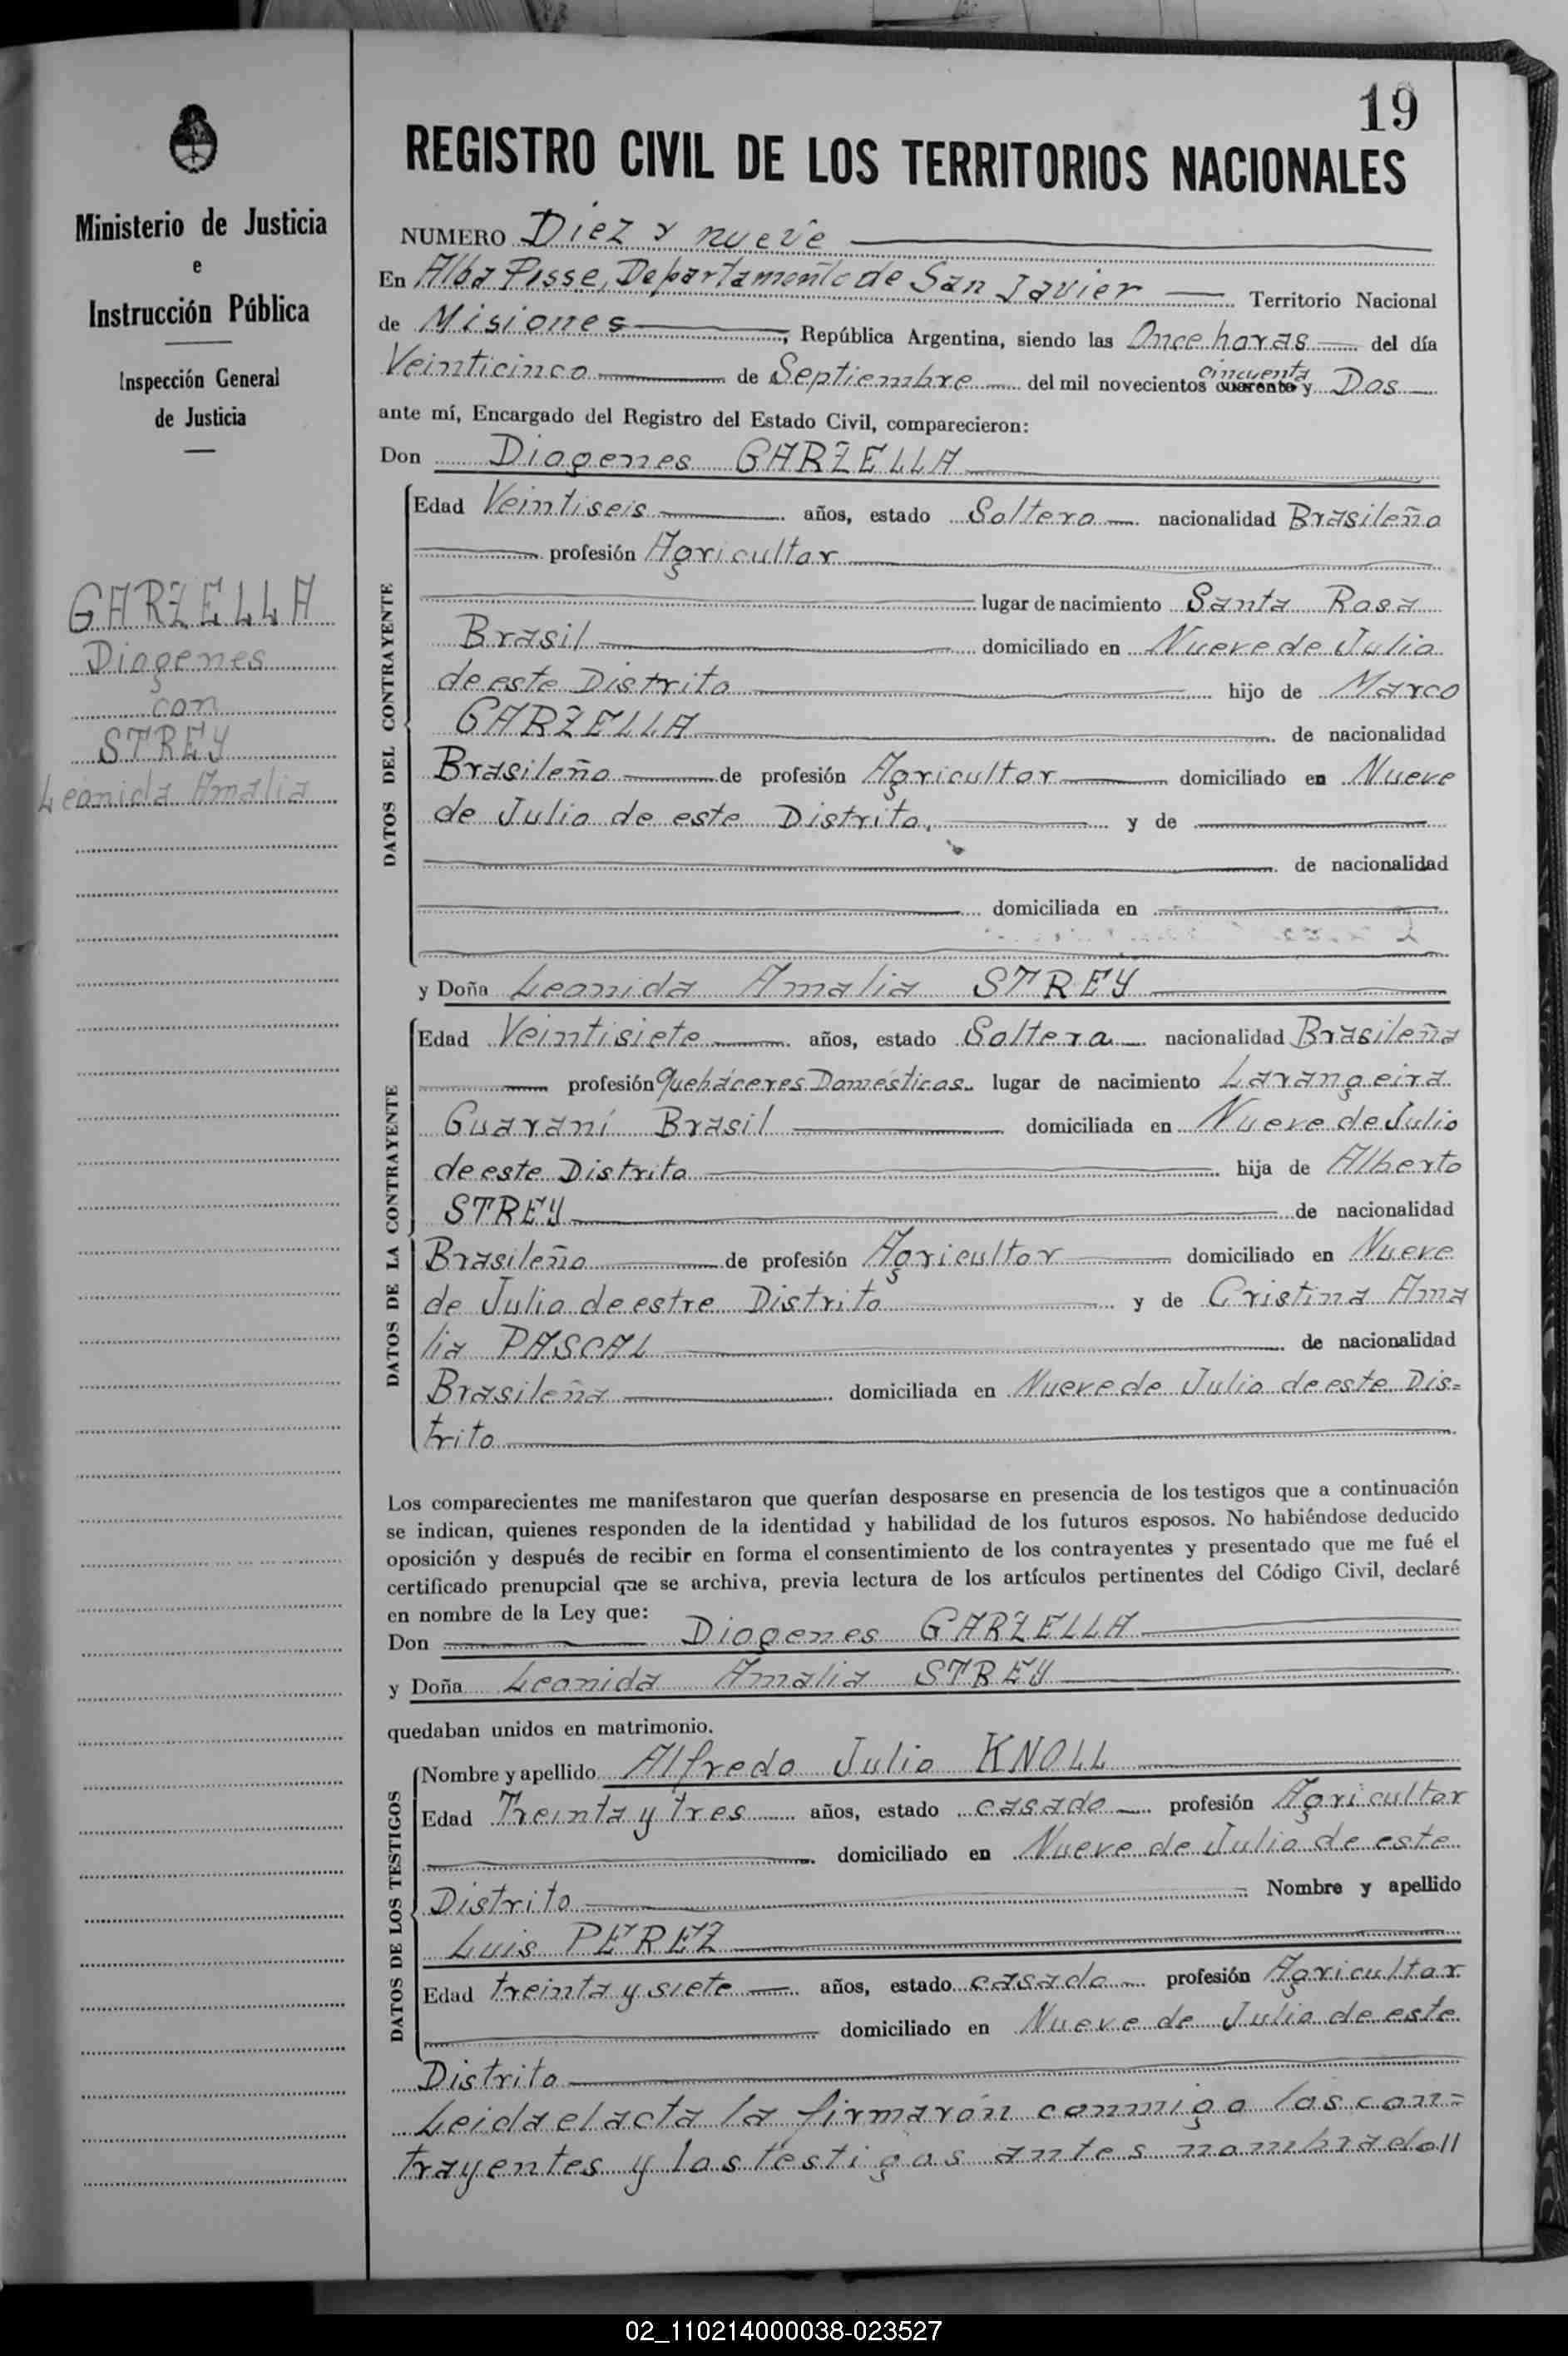 19
REGISTRO CIVIL DE LOS TERRITORIOS NACIONALES
Ministerio de Justicia
e
Instrucción Pública
Inspección General
de Justicia
GARZELLA
Diogenes
con
STREY
Leonida Amalia
NUMERO Diez y nueve
En Alba Posse, Departamento de San Javier Territorio Nacional
de Misiones, República Argentina, siendo las Once horas del día
Veinticinco de Septiembre del mil novecientos cuarenta cincuenta y Dos
ante mí, Encargado del Registro del Estado Civil, comparecieron:
Don Diogenes GARZELLA
DATOS DEL CONTRAYENTE
Edad Veintiseis años, estado Soltero nacionalidad Brasileño
profesión Agricultor
lugar de nacimiento Santa Rosa
Brasil domiciliado en Nueve de Julio
de este Distrito hijo de Marco
GARZELLA de nacionalidad
Brasileño de profesión Agricultor domiciliado en Nueve
de Julio de este Distrito. y de
de nacionalidad
domiciliada en
y Doña Leonida Amalia STREY
DATOS DE LA CONTRAYENTE
Edad Veintisiete años, estado Soltera nacionalidad Brasileña
profesión Quehaceres Domésticos lugar de nacimiento Larangeira
Guaraní Brasil domiciliada en Nueve de Julio
de este Distrito hija de Alberto
STREY de nacionalidad
Brasileño de profesión Agricultor domiciliado en Nueve
de Julio de estre Distrito y de Cristina Ama
lia PASCAL de nacionalidad
Brasileña domiciliada en Nueve de Julio de este Dis=
trito
Los comparecientes me manifestaron que querían desposarse en presencia de los testigos que a continuación
se indican, quienes responden de la identidad y habilidad de los futuros esposos. No habiéndose deducido
oposición y después de recibir en forma el consentimiento de los contrayentes y presentado que me fué el
certificado prenupcial que se archiva, previa lectura de los artículos pertinentes del Código Civil, declaré
en nombre de la Ley que:
Don Diogenes GARZELLA
y Doña Leonida Amalia STREY
quedaban unidos en matrimonio.
DATOS DE LOS TESTIGOS
Nombre y apellido Alfredo Julio KNOLL
Edad Treinta y tres años, estado casado profesión Agricultor
domiciliado en Nueve de Julio de este
Distrito Nombre y apellido
Luis PEREZ
Edad treinta y siete años, estado casado profesión Agricultor
domiciliado en Nueve de Julio de este
Distrito
Leida el acta la firmarón conmigo los con=
trayentes y los testigos antes nombrado//
02_110214000038-023527